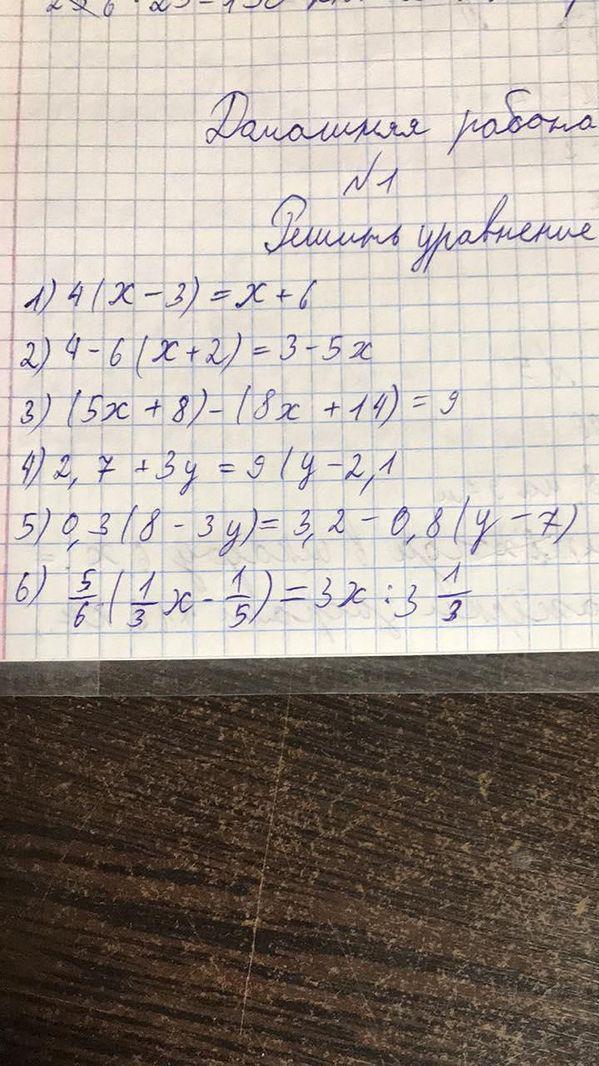 Домашняя работа
№1
Решить уравнение
1) 4(x-3)=x+6
2) 4-6(x+2)=3-5x
3) (5x+8)-(8x+14)=9
4) 2,7+3y=9(y-2,1
5) 0,3(8-3y)=3,2-0,8(y-7)
6) 5/6(1/3x-1/5)=3x:3 1/3